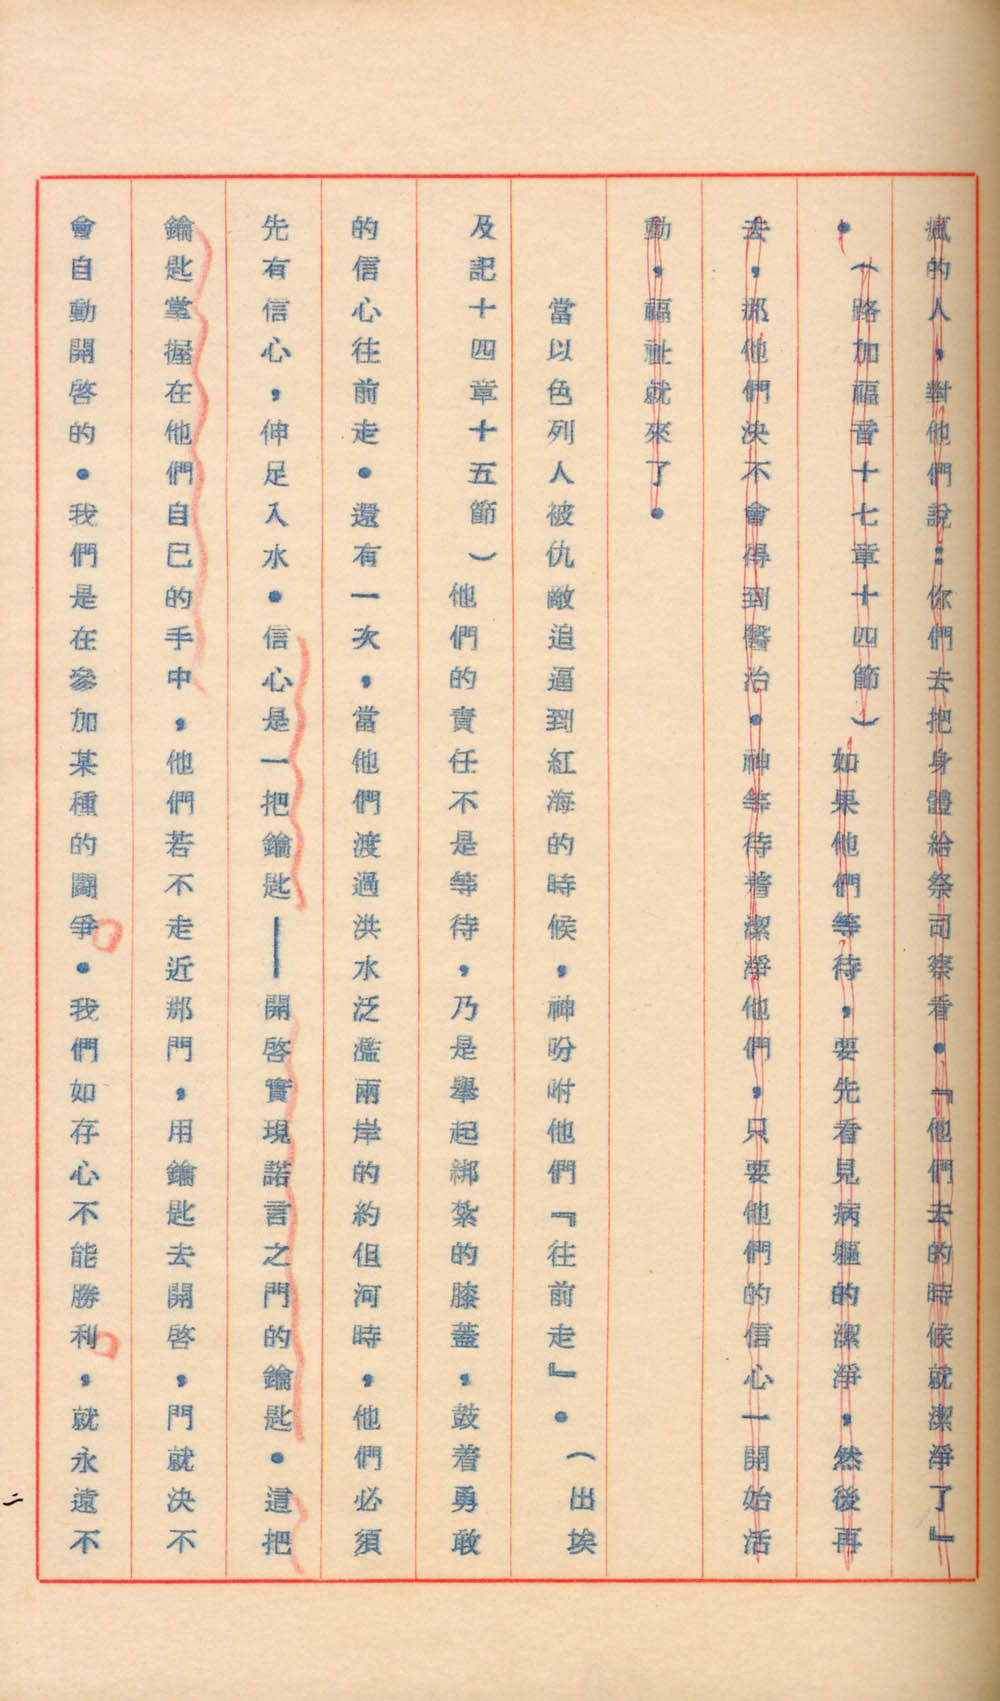 瘋的人，對他們說：你們去把身體給祭司察看。『他們去的時候就潔淨了』
。（路加福音十七章十四節）如果他們等待，要先看見病軀的潔淨，然後再
去，那他們決不會得到醫治。神等待着潔淨他們，只要他們的信心一開始活
動，福祉就來了。
當以色列人被仇敵追逼到紅海的時候，神吩咐他們『往前走』。（出埃
及記十四章十五節）他們的責任不是等待，乃是舉起綁紮的膝蓋，鼓着勇敢
的信心往前走。還有一次，當他們渡過洪水泛濫兩岸的約但河時，他們必須
先有信心，伸足入水。信心是一把鑰匙——開啓實現諾言之門的鑰匙。這把
鑰匙掌握在他們自己的手中，他們若不走近那門，用鑰匙去開啓，門就決不
會自動開啓的。我們是在參加某種的鬪爭。我們如存心不能勝利，就永遠不
二